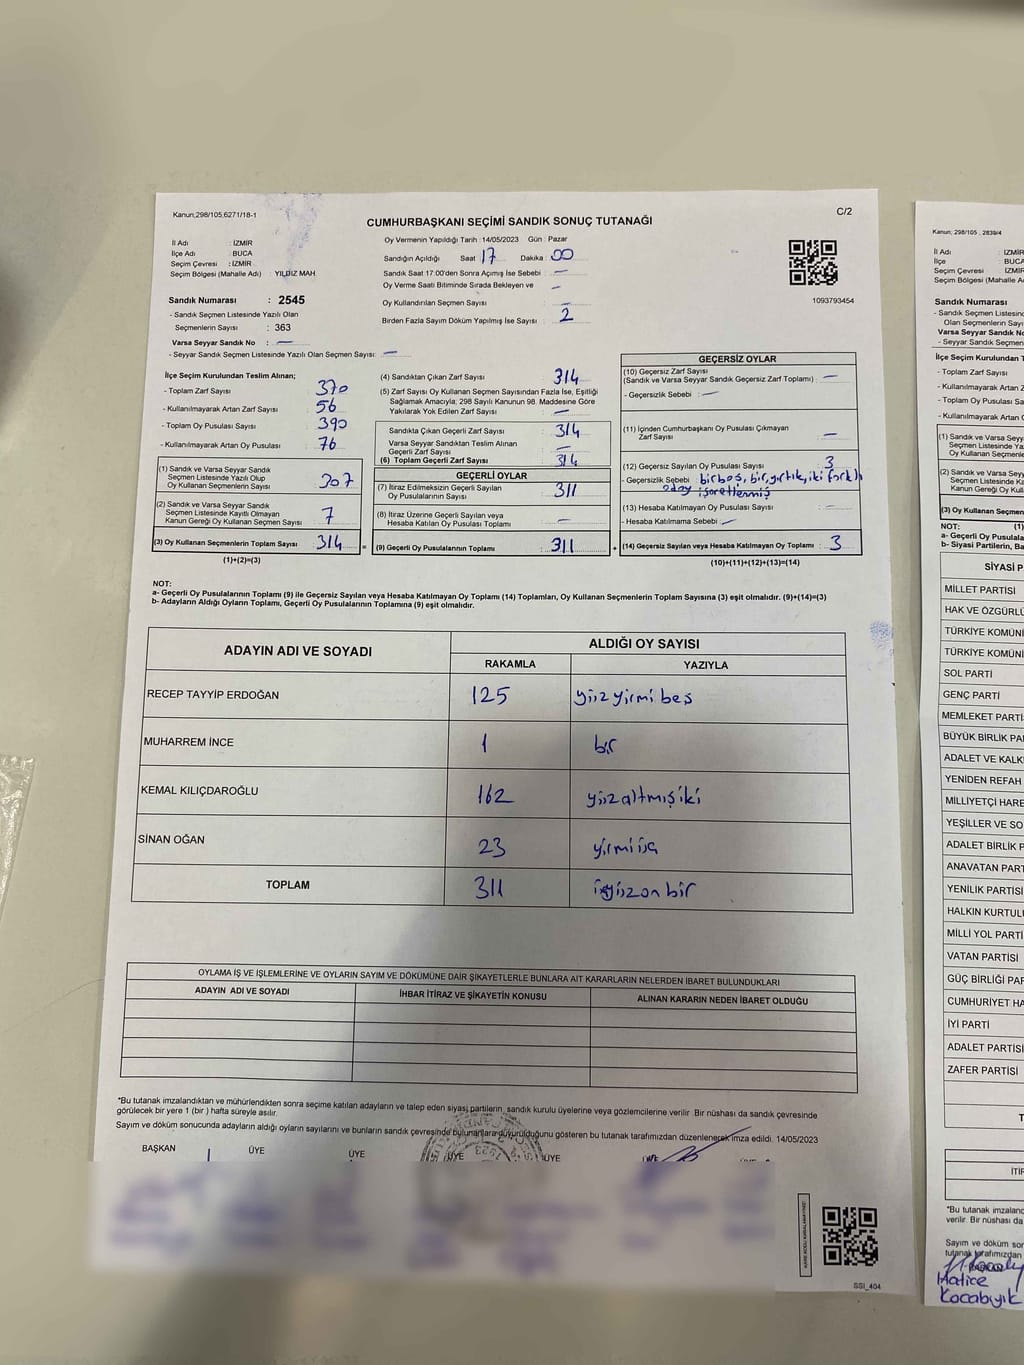 Kanun;298/105,6271/18-1
C/2
CUMHURBAŞKANI SEÇİMİ SANDIK SONUÇ TUTANAĞI
İl Adı : İZMİR
İlçe Adı : BUCA
Seçim Çevresi : İZMİR
Seçim Bölgesi (Mahalle Adı) : YILDIZ MAH.
Oy Vermenin Yapıldığı Tarih :14/05/2023 Gün : Pazar
Sandığın Açıldığı Saat 17 Dakika : 00
Sandık Saat 17:00'den Sonra Açımış İse Sebebi : —
Oy Verme Saati Bitiminde Sırada Bekleyen ve
Oy Kullandırılan Seçmen Sayısı : —
Birden Fazla Sayım Döküm Yapılmış İse Sayısı : 2
1093793454
Sandık Numarası : 2545
- Sandık Seçmen Listesinde Yazılı Olan
Seçmenlerin Sayısı : 363
Varsa Seyyar Sandık No : —
- Seyyar Sandık Seçmen Listesinde Yazılı Olan Seçmen Sayısı: —
İlçe Seçim Kurulundan Teslim Alınan;
- Toplam Zarf Sayısı : 370
- Kullanılmayarak Artan Zarf Sayısı : 56
- Toplam Oy Pusulası Sayısı : 390
- Kullanılmayarak Artan Oy Pusulası : 76
(1) Sandık ve Varsa Seyyar Sandık
Seçmen Listesinde Yazılı Olup
Oy Kullanan Seçmenlerin Sayısı : 307
(2) Sandık ve Varsa Seyyar Sandık
Seçmen Listesinde Kayıtlı Olmayan
Kanun Gereği Oy Kullanan Seçmen Sayısı : 7
(3) Oy Kullanan Seçmenlerin Toplam Sayısı : 314
(1)+(2)=(3)
(4) Sandıktan Çıkan Zarf Sayısı : 314
(5) Zarf Sayısı Oy Kullanan Seçmen Sayısından Fazla İse, Eşitliği
Sağlamak Amacıyla; 298 Sayılı Kanunun 98. Maddesine Göre
Yakılarak Yok Edilen Zarf Sayısı : —
Sandıkta Çıkan Geçerli Zarf Sayısı : 314
Varsa Seyyar Sandıktan Teslim Alınan
Geçerli Zarf Sayısı : —
(6) Toplam Geçerli Zarf Sayısı : 314
GEÇERLİ OYLAR
(7) İtiraz Edilmeksizin Geçerli Sayılan
Oy Pusulalarının Sayısı : 311
(8) İtiraz Üzerine Geçerli Sayılan veya
Hesaba Katılan Oy Pusulası Toplamı : —
= (9) Geçerli Oy Pusulalarının Toplamı : 311
GEÇERSİZ OYLAR
(10) Geçersiz Zarf Sayısı
(Sandık ve Varsa Seyyar Sandık Geçersiz Zarf Toplamı) : —
- Geçersizlik Sebebi : —
(11) İçinden Cumhurbaşkanı Oy Pusulası Çıkmayan
Zarf Sayısı : —
(12) Geçersiz Sayılan Oy Pusulası Sayısı : 3
- Geçersizlik Sebebi : bir boş, bir yırtık, iki farklı
aday işaretlenmiş
(13) Hesaba Katılmayan Oy Pusulası Sayısı : —
- Hesaba Katılmama Sebebi : —
+ (14) Geçersiz Sayılan veya Hesaba Katılmayan Oy Toplamı : 3
(10)+(11)+(12)+(13)=(14)
NOT:
a- Geçerli Oy Pusulalarının Toplamı (9) ile Geçersiz Sayılan veya Hesaba Katılmayan Oy Toplamı (14) Toplamları, Oy Kullanan Seçmenlerin Toplam Sayısına (3) eşit olmalıdır. (9)+(14)=(3)
b- Adayların Aldığı Oyların Toplamı, Geçerli Oy Pusulalarının Toplamına (9) eşit olmalıdır.
ADAYIN ADI VE SOYADI ALDIĞI OY SAYISI
RAKAMLA YAZIYLA
RECEP TAYYİP ERDOĞAN 125 yüzyirmi beş
MUHARREM İNCE 1 bir
KEMAL KILIÇDAROĞLU 162 yüzaltmışiki
SİNAN OĞAN 23 yirmiüç
TOPLAM 311 üçyüzon bir
OYLAMA İŞ VE İŞLEMLERİNE VE OYLARIN SAYIM VE DÖKÜMÜNE DAİR ŞİKAYETLERLE BUNLARA AİT KARARLARIN NELERDEN İBARET BULUNDUKLARI
ADAYIN ADI VE SOYADI İHBAR İTİRAZ VE ŞİKAYETİN KONUSU ALINAN KARARIN NEDEN İBARET OLDUĞU
*Bu tutanak imzalandıktan ve mühürlendikten sonra seçime katılan adayların ve talep eden siyasi partilerin, sandık kurulu üyelerine veya gözlemcilerine verilir. Bir nüshası da sandık çevresinde
görülecek bir yere 1 (bir ) hafta süreyle asılır.
Sayım ve döküm sonucunda adayların aldığı oyların sayılarını ve bunların sandık çevresinde bulunanlara duyurulduğunu gösteren bu tutanak tarafımızdan düzenlenerek imza edildi. 14/05/2023
BAŞKAN ÜYE ÜYE ÜYE ÜYE ÜYE
SSI_404
Kanun; 298/105 , 2839/4
İl Adı : İZMİR
İlçe : BUCA
Seçim Çevresi : İZMİR
Seçim Bölgesi (Mahalle
Sandık Numarası
- Sandık Seçmen
Olan Seçmenlerin
Varsa Seyyar Sandık
- Seyyar Sandık Seçmen
İlçe Seçim Kurulundan
- Toplam Zarf Sayısı
- Kullanılmayarak Artan
- Toplam Oy Pusulası
- Kullanılmayarak Artan
(1) Sandık ve Varsa
Seçmen Listesinde
Oy Kullanan
(2) Sandık ve Varsa
Seçmen Listesinde
Kanun Gereği Oy
(3) Oy Kullanan
NOT:
a- Geçerli Oy
b- Siyasi Partilerin,
SİYASİ
MİLLET PARTİSİ
HAK VE
TÜRKİYE
TÜRKİYE
SOL PARTİ
GENÇ PARTİ
MEMLEKET
BÜYÜK BİRLİK
ADALET VE
YENİDEN REFAH
MİLLİYETÇİ
YEŞİLLER VE
ADALET BİRLİK
ANAVATAN
YENİLİK PARTİSİ
HALKIN
MİLLİ YOL
VATAN PARTİSİ
GÜÇ BİRLİĞİ
CUMHURİYET
İYİ PARTİ
ADALET PARTİSİ
ZAFER PARTİSİ
*Bu tutanak
verilir. Bir nüshası da
Sayım ve döküm
tutanak tarafımızdan
BAŞKAN
Hatice
Kocabıyık